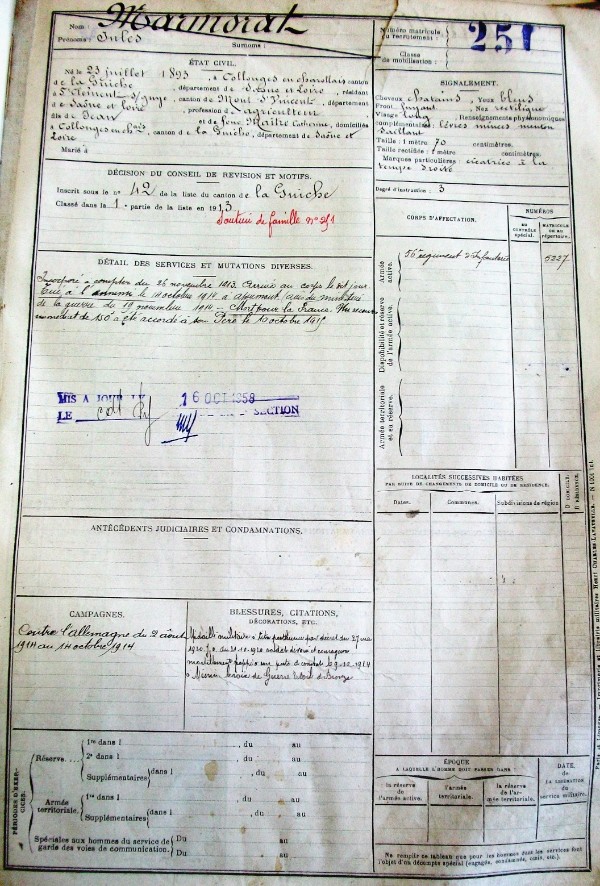 Nom : Marmorat
Prénoms : Jules
Surnoms :
Numéro matricule du recrutement : 251
Classe de mobilisation :
ÉTAT CIVIL.
Né le 23 juillet 1893, à Collonges en charollais canton
de la Guiche, département de Saône et Loire, résidant
à St Clément s/ Guye, canton de Mont St Vincent, département
de Saône et Loire, profession de agriculteur
de Jean et de feue Maître Catherine, domiciliés
à Collonges en Chais, canton de la Guiche, département de Saône et
Loire
Marié à
SIGNALEMENT.
Cheveux chatains, Yeux bleus
Front fuyant Nez rectiligne
Visage long Renseignements physionomiques
complémentaires : Lèvres minces menton
saillant
Taille : 1 mètre 70 centimètres.
Taille rectifiée : 1 mètre centimètres.
Marques particulières : cicatrice à la
tempe droite
Degré d'instruction : 3
DÉCISION DU CONSEIL DE RÉVISION ET MOTIFS.
Inscrit sous le no 42 de la liste du canton de la Guiche
Classé dans le 1 partie de la liste en 1913
Soutien de famille no 251
DÉTAIL DES SERVICES ET MUTATIONS DIVERSES.
Incorporé à compter du 26 novembre 1913. Arrivé au corps le dit jour
Tué à l'ennemi le 14 octobre 1914 à (avis du ministère
de la guerre du 19 novembre 1914 Mort pour la France. Un secours
immédiat de 150 a été accordé à son Père le octobre 1915
MIS A JOUR LE
LE
16 OCT 1958
SECTION
CORPS D'AFFECTATION.
NUMÉROS
AU CONTRÔLE spécial.
MATRICULE OU AU répertoire.
Armée active.
56e régiment d'Infanterie
Disponibilité et réserve de l'armée active.
Armée territoriale et sa réserve.
LOCALITÉS SUCCESSIVES HABITÉES
PAR SUITE DE CHANGEMENTS DE DOMICILE OU DE RÉSIDENCE.
Dates.
Communes.
Subdivisions de région
D. DOMICILE.
R. RÉSIDENCE.
ANTÉCÉDENTS JUDICIAIRES ET CONDAMNATIONS.
CAMPAGNES.
Contre l'allemagne du 2 août
1914 au 14 octobre 1914
BLESSURES, CITATIONS,
DÉCORATIONS, ETC.
Médaille militaire à titre posthume par décret du 27 mai
1920 J.O. du 1920 soldat dévoué et courageux
mortellement frappé à son poste de combat
Croix de Guerre Etoile de Bronze
PÉRIODES D'EXERCICES.
Réserve....
1re dans l , du au
2e dans l , du au
Supplémentaires dans l , du au
Armée territoriale.
1re dans l , du au
Supplémentaires dans l , du au
Spéciales aux hommes du service de
garde des voies de communication.
Du au
Du au
ÉPOQUE
A LAQUELLE L'HOMME DOIT PASSER DANS :
la réserve de l'armée active.
l'armée territoriale.
la réserve de l'armée territoriale.
DATE
de
LA LIBÉRATION
du
service militaire.
Ne remplir ce tableau que pour les hommes dont les services font
l'objet d'un décompte spécial (engagés, condamnés, omis, etc.)